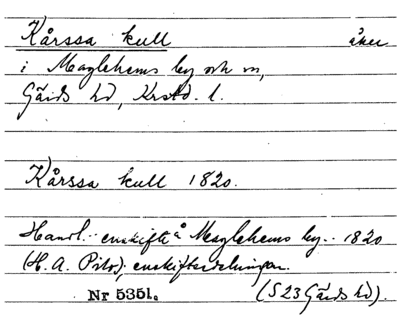 Kårssa kull åker
i Maglehems by och sn,
Gärds hd, Krstd. l.
Kårssa kull 1820.
Handl. enskifte å Maglehems by. 1820
(H. A. ); enskiftesdelningen.
Nr 5351. (S 23 Gärds hd).